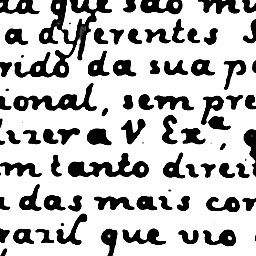 que são
a differentes
da sua
ional, sem
dizer a V Ex.ª,
m tanto direi
das mais
razil que vio